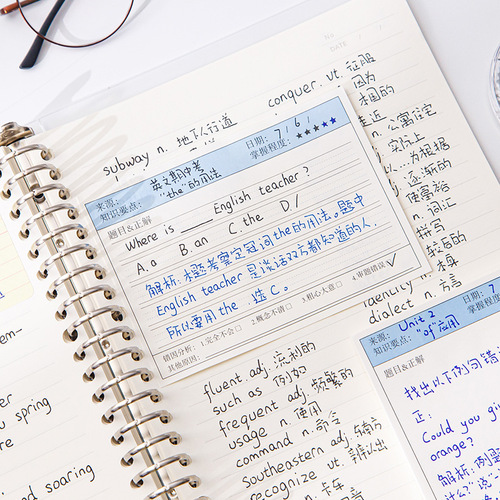 No
DATE
conquer vt. 征服
subway n. 地下人行道
因为
本国的
靠近
n. 公寓住宅
实际上
...为根据
逐渐的
使富裕
n. 词汇
拼写
较后的
identity
dialect n. 方言
来源: 英文期中考
知识要点: "the"的用法
日期: 7/6/
掌握程度: ★★★★★
题目&正解
Where is ___ English teacher?
A. a B. an C. the D. /
解析: 本题考察定冠词the的用法。题中
English teacher是谈话双方都知道的人.
所以要用the. 选C。
错因分析: 1.完全不会□ 2.概念不清□ 3.粗心大意□ 4.审题错误☑
其他原因:
fluent adj. 流利的
such as 例如
frequent adj. 频繁的
usage n. 使用
command n. 命令
Southeastern adj. 东南方
recognize vt. 辨认出
n. 卡车
来源: Unit 2
知识要点: "of"应用
日期: 7
掌握程度:
题目&正解
找出以下例句错
正:
Could you giv
orange?
解析: 例
spring
and soaring